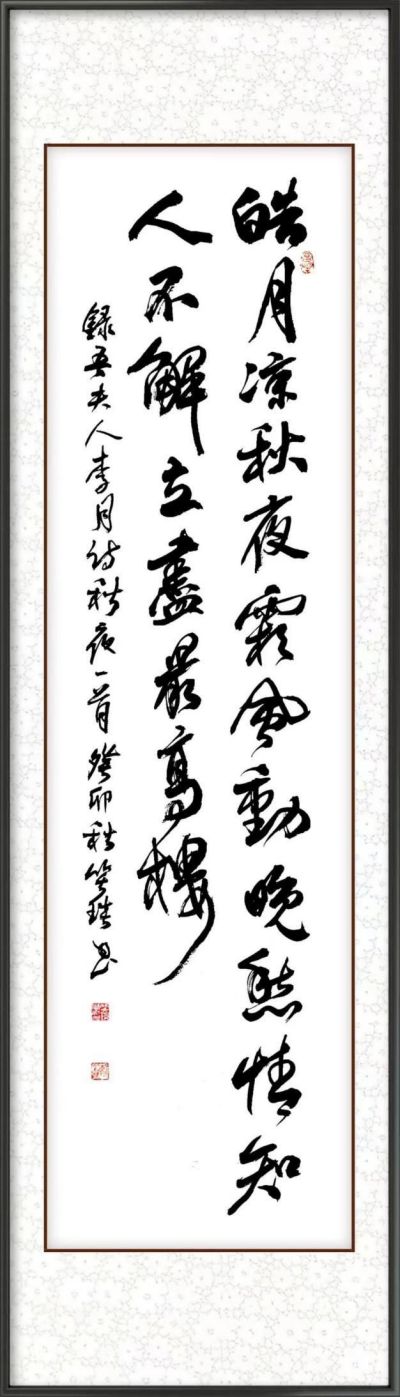 皓月凉秋夜霜风動晚愁情知
人不解立盡最高樓
録吾夫人李月诗秋夜一首癸卯秋笑琪书